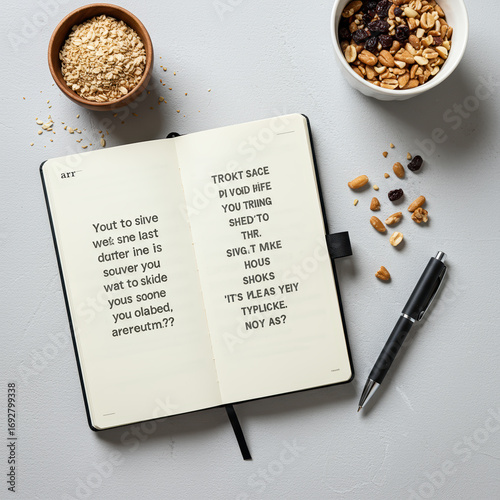 arr
Yout to siive
we&: sne last
darter ine is
souver you
wat to skide
yous soone
you olabed,
arereutm.??
TROKT SACE
PI VOID HIFE
YOU TRIING
SHED'TO
THR.
SIVG.T MKE
HOUS
SHOKS
'T'S PLE AS YEIY
TYPLICKE.
NOY AS?
Adobe Stock | #1692799338